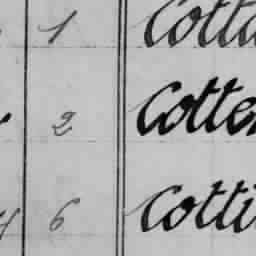 1 Cotta
2 Cotte
6 Cotti